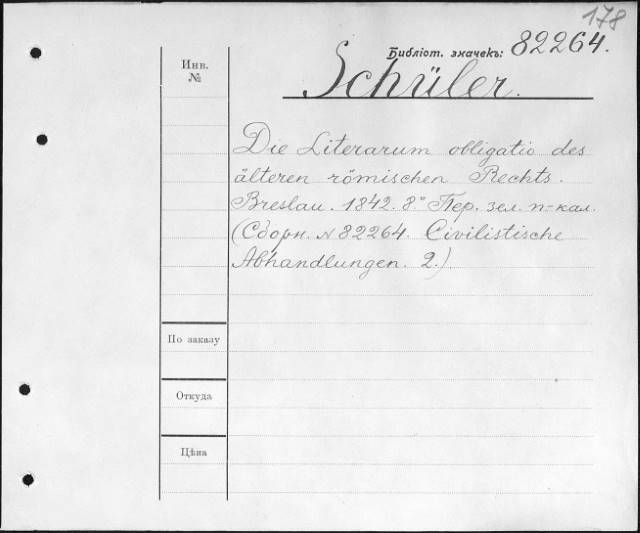 178
Библіот. значекъ: 82264.
Инв.
№
Schüler.
Die Literarum obligatio des
älteren römischen Rechts.
Breslau. 1842. 8° Пер. зел. п-кал.
(Сборн. № 82264. Civilistische
Abhandlungen. 2.)
По заказу
Откуда
Цѣна